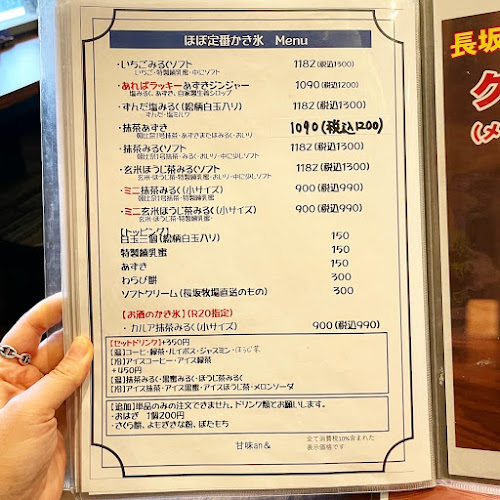 ほぼ定番かき氷 Menu
・いちごみるくソフト 1182(税込1300)
いちご・特製練乳蜜・中にソフト
・あればラッキーあずきジンジャー 1090(税込1200)
塩みるく、あずき、自家製生姜シロップ
・ずんだ塩みるく(総柄白玉入り) 1182(税込1300)
ずんだ・塩ミルク
・抹茶あずき 1090(税込1200)
朝比奈1号抹茶・あずきまたはみるく・おいり
・抹茶みるくソフト 1182(税込1300)
朝比奈1号抹茶・みるく・おいり・中に少しソフト
・玄米ほうじ茶みるくソフト 1182(税込1300)
玄米・ほうじ茶・特製練乳蜜・おいり・中に少しソフト
・ミニ抹茶みるく(小サイズ) 900(税込990)
朝比奈1号抹茶・特製練乳蜜
・ミニ玄米ほうじ茶みるく(小サイズ) 900(税込990)
玄米・ほうじ茶・特製練乳蜜
【トッピング】
白玉三個(総柄白玉入り) 150
特製練乳蜜 150
あずき 150
わらび餅 300
ソフトクリーム(長坂牧場直送のもの) 300
【お酒のかき氷】(R20指定)
・カルア抹茶みるく(小サイズ) 900(税込990)
【セットドリンク】+350円
【温】コーヒ・緑茶・ルイボス・ジャスミン・ほうじ茶
【冷】アイスコーヒー・アイス緑茶
+450円
【温】抹茶みるく・黒蜜みるく・ほうじ茶みるく
【冷】アイス抹茶・アイス黒蜜・アイスほうじ茶・メロンソーダ
【追加】単品のみの注文できません。ドリンク類とお願いします。
・おはぎ 1個200円
・さくら餅、よもぎきな粉、ぼたもち
甘味an&
全て消費税10%含まれた
表示価格です
長坂
ク
(メ